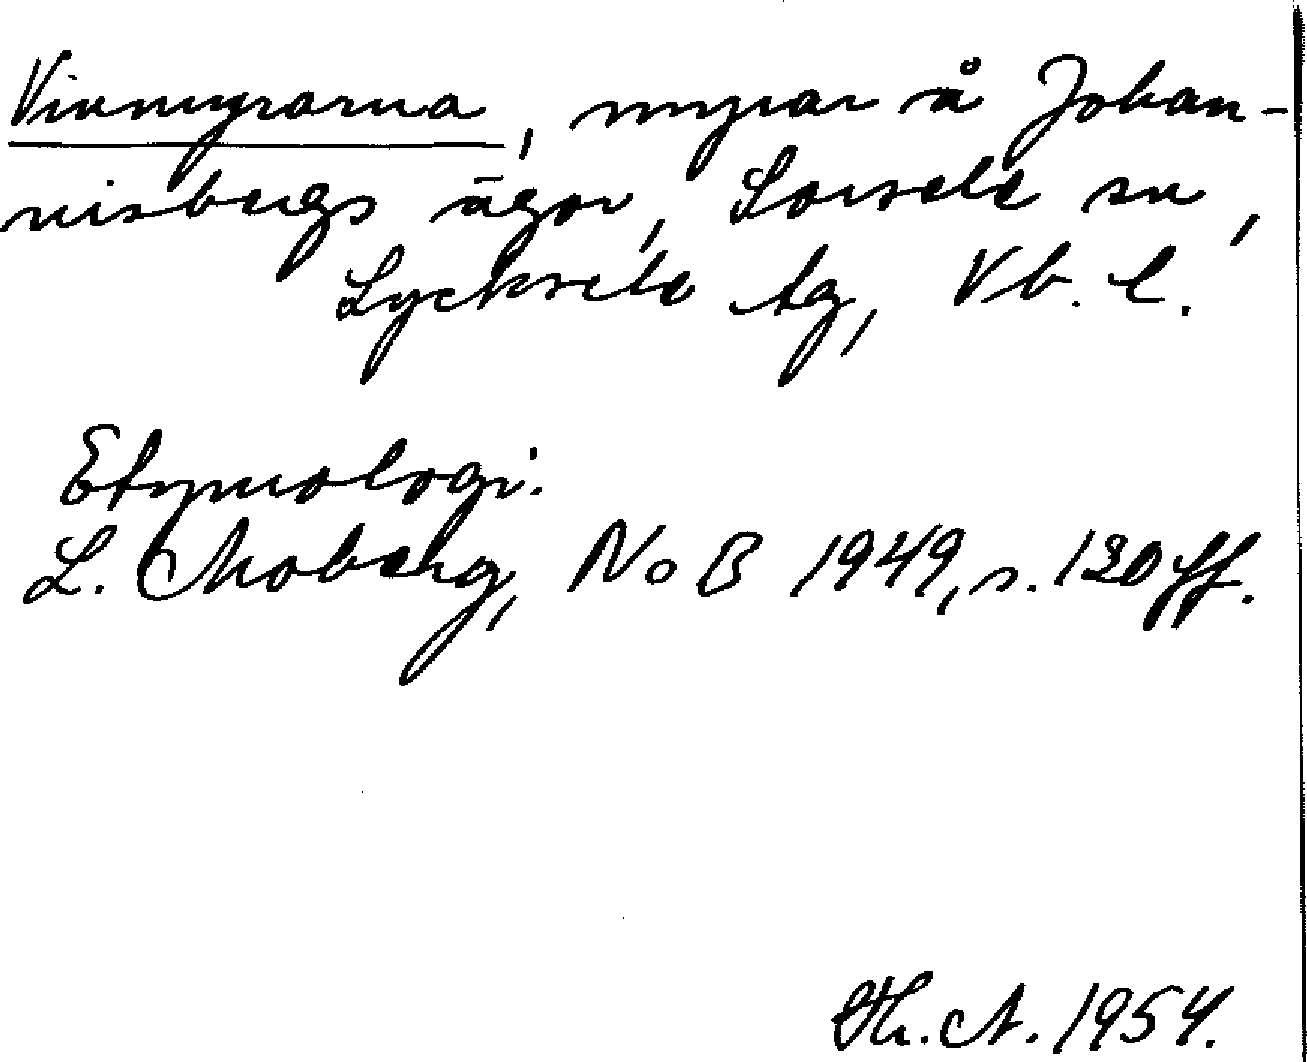 Vinmyrarna, myrar å Johan-
nisbergs ägor, Sorsele sn,
Lycksele tg, Vb. l.
Etymologi:
L. Moberg, NoB 1949, s. 120 ff.
Th. A. 1954.